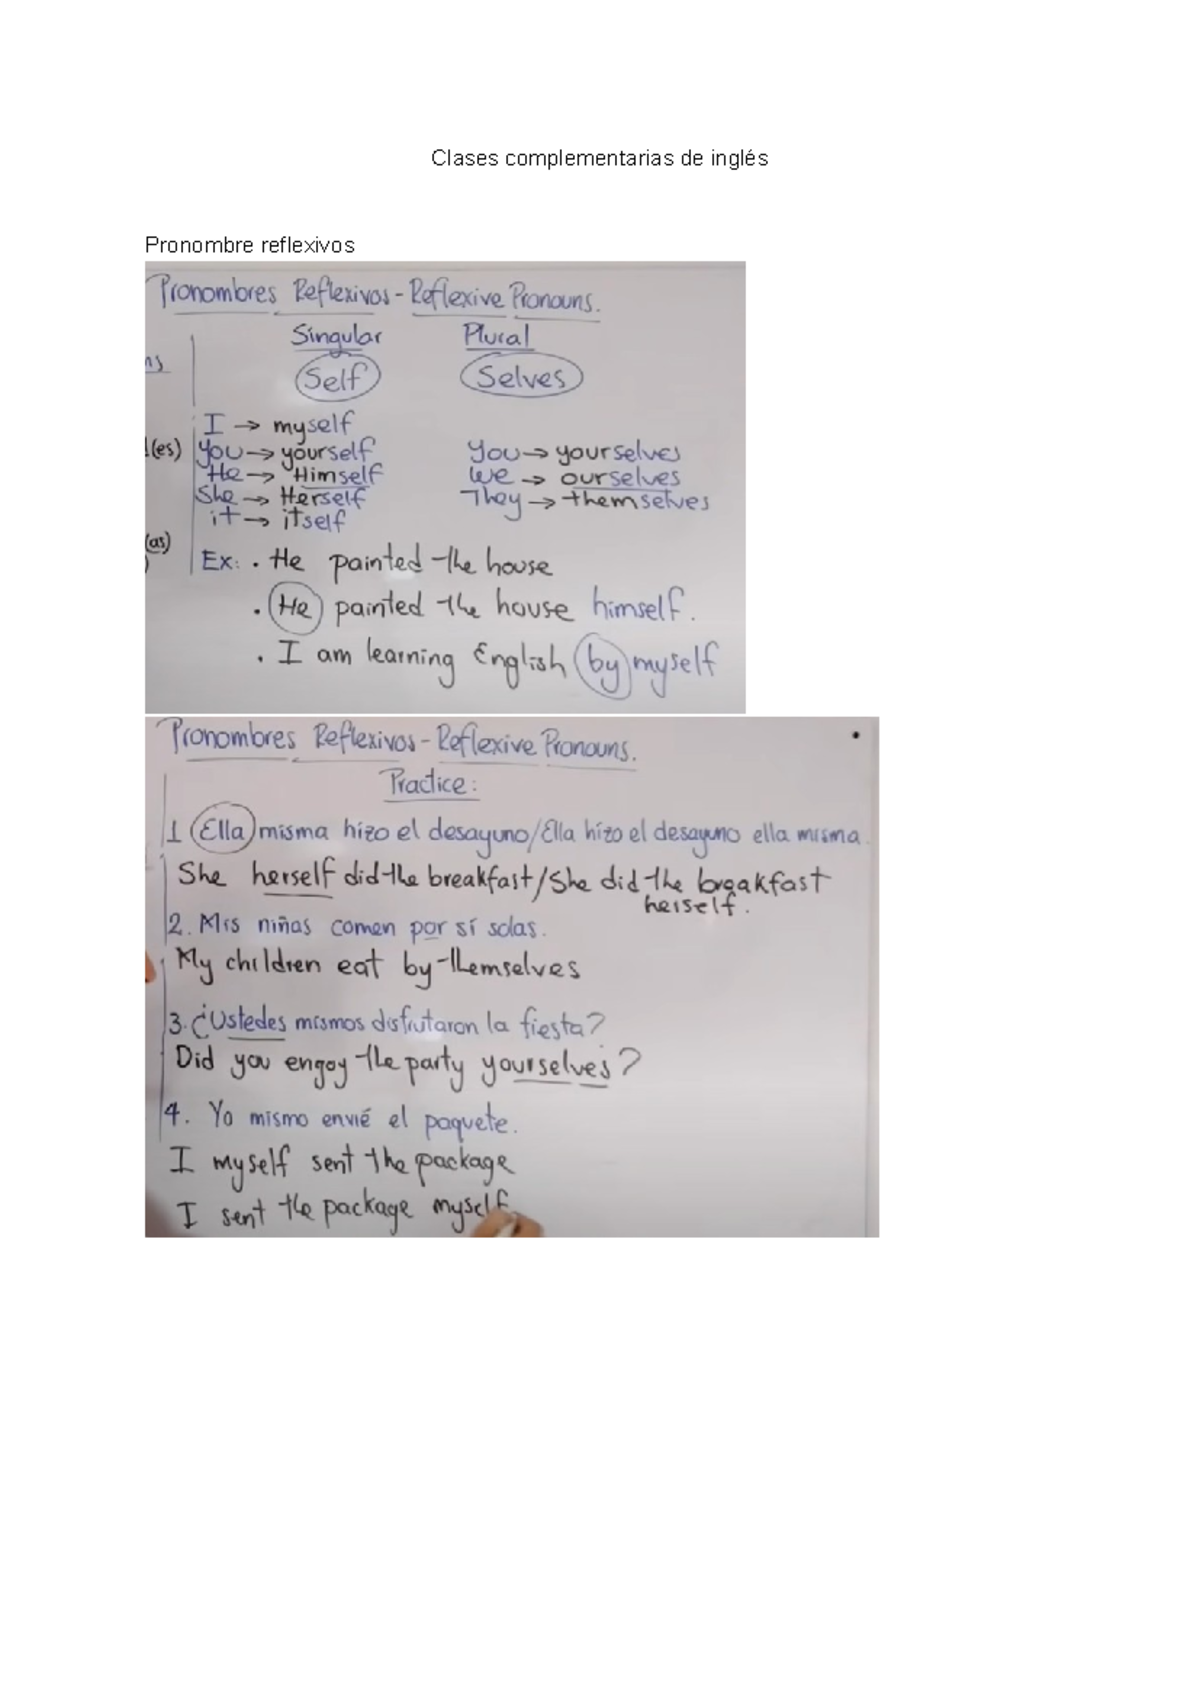 Clases complementarias de inglés
Pronombre reflexivos
Pronombres Reflexivos - Reflexive Pronouns.
Singular Plural
ns
Self Selves
I → myself
(es) you → yourself You → yourselves
He → Himself We → ourselves
She → Herself They → themselves
it → itself
(as)
Ex: . He painted the house
. He painted the house himself.
. I am learning English by myself
Pronombres Reflexivos - Reflexive Pronouns.
Practice:
1 Ella misma hizo el desayuno/Ella hizo el desayuno ella misma.
She herself did the breakfast/She did the breakfast
herself.
2. Mis niñas comen por sí solas.
My children eat by themselves
3. ¿Ustedes mismos disfrutaron la fiesta?
Did you engoy the party yourselves?
4. Yo mismo envié el paquete.
I myself sent the package
I sent the package myself